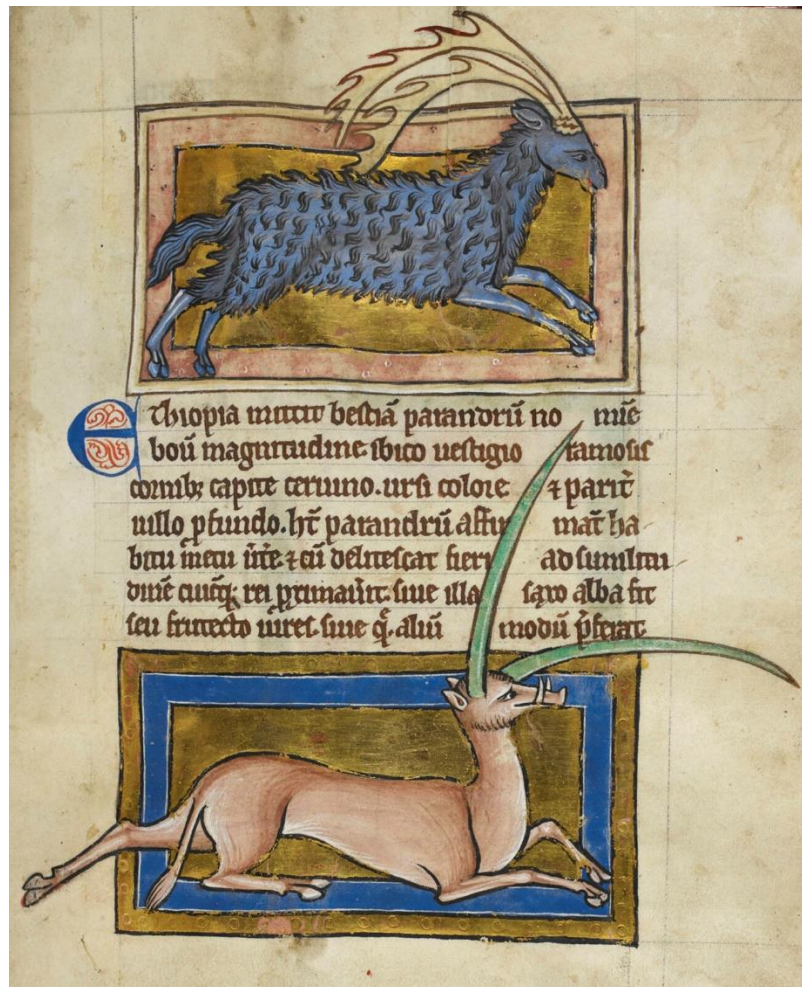 Ethiopia mittit bestiā parandrū no mīe
boū magnitudine ibico uestigio ramosis
cornibꝫ capite ceruino. ursi colore ⁊ parit̄
uillo ꝓfundo. hc̄ parandrū affir mat̄ ha
bitu metu ūt̄e ⁊ cū delitescat fieri ad similitu
dinē cuiꝰqꝫ rei ꝓximau̾it. siue illa saxo alba sit
seu frutecto uiret. siue qͣ̄ aliū modū p̄ferat.